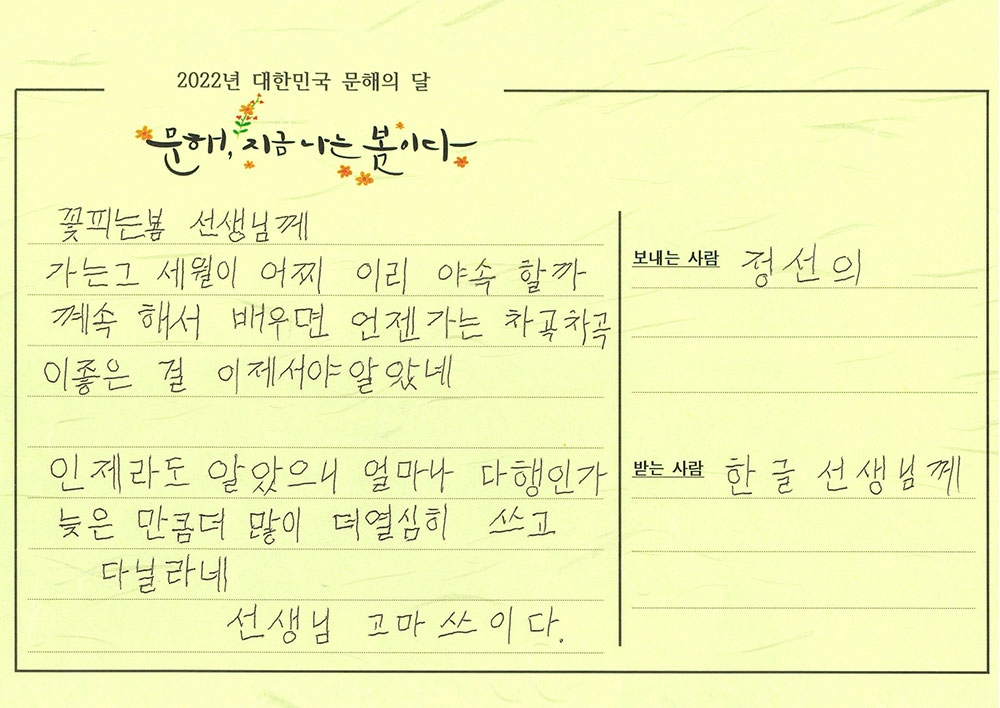 2022년 대한민국 문해의 달
문해, 지금 나는 봄이다
꽃피는봄 선생님께
가는그 세월이 어찌 이리 야속 할까
꼐속 해서 배우면 언젠가는 차곡차곡
이좋은 걸 이제서야알았네
인제라도 알았으니 얼마나 다행인가
늦은 만큼더 많이 더열심히 쓰고
다닐라네
선생님 고마쓰이다.
보내는 사람 정선의
받는 사람 한글 선생님께